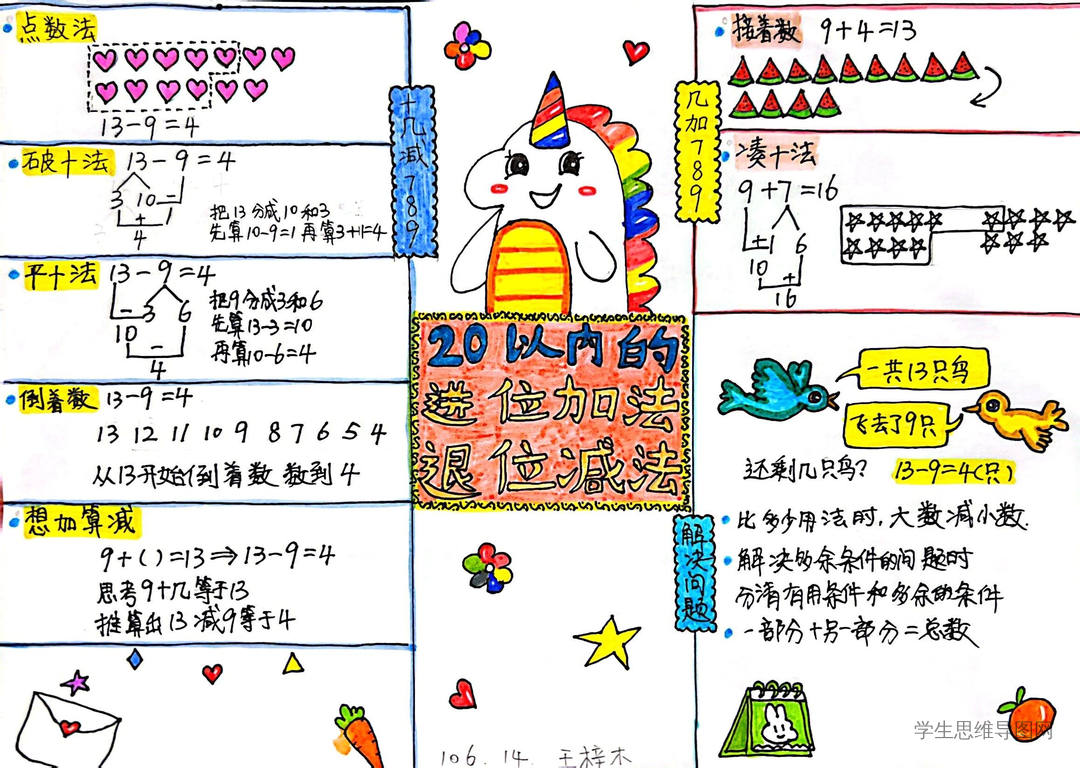 点数法
13-9=4
破十法 13-9=4
3 10
1
4
把13分成10和3
先算10-9=1 再算3+1=4
平十法 13-9=4
3 6
10
4
把9分成3和6
先算13-3=10
再算10-6=4
倒着数 13-9=4
13 12 11 10 9 8 7 6 5 4
从13开始倒着数 数到4
想加算减
9+( )=13⇒13-9=4
思考9+几等于13
推算出13减9等于4
十几减789
20以内的
进位加法
退位减法
106.14. 王梓木
几加789
接着数 9+4=13
凑十法
9+7=16
1 6
10
16
一共13只鸟
飞去了9只
还剩几只鸟? 13-9=4(只)
解决问题
比多少用法时,大数减小数.
解决多余条件的问题时
分清有用条件和多余的条件
一部分+另一部分=总数
学生思维导图网